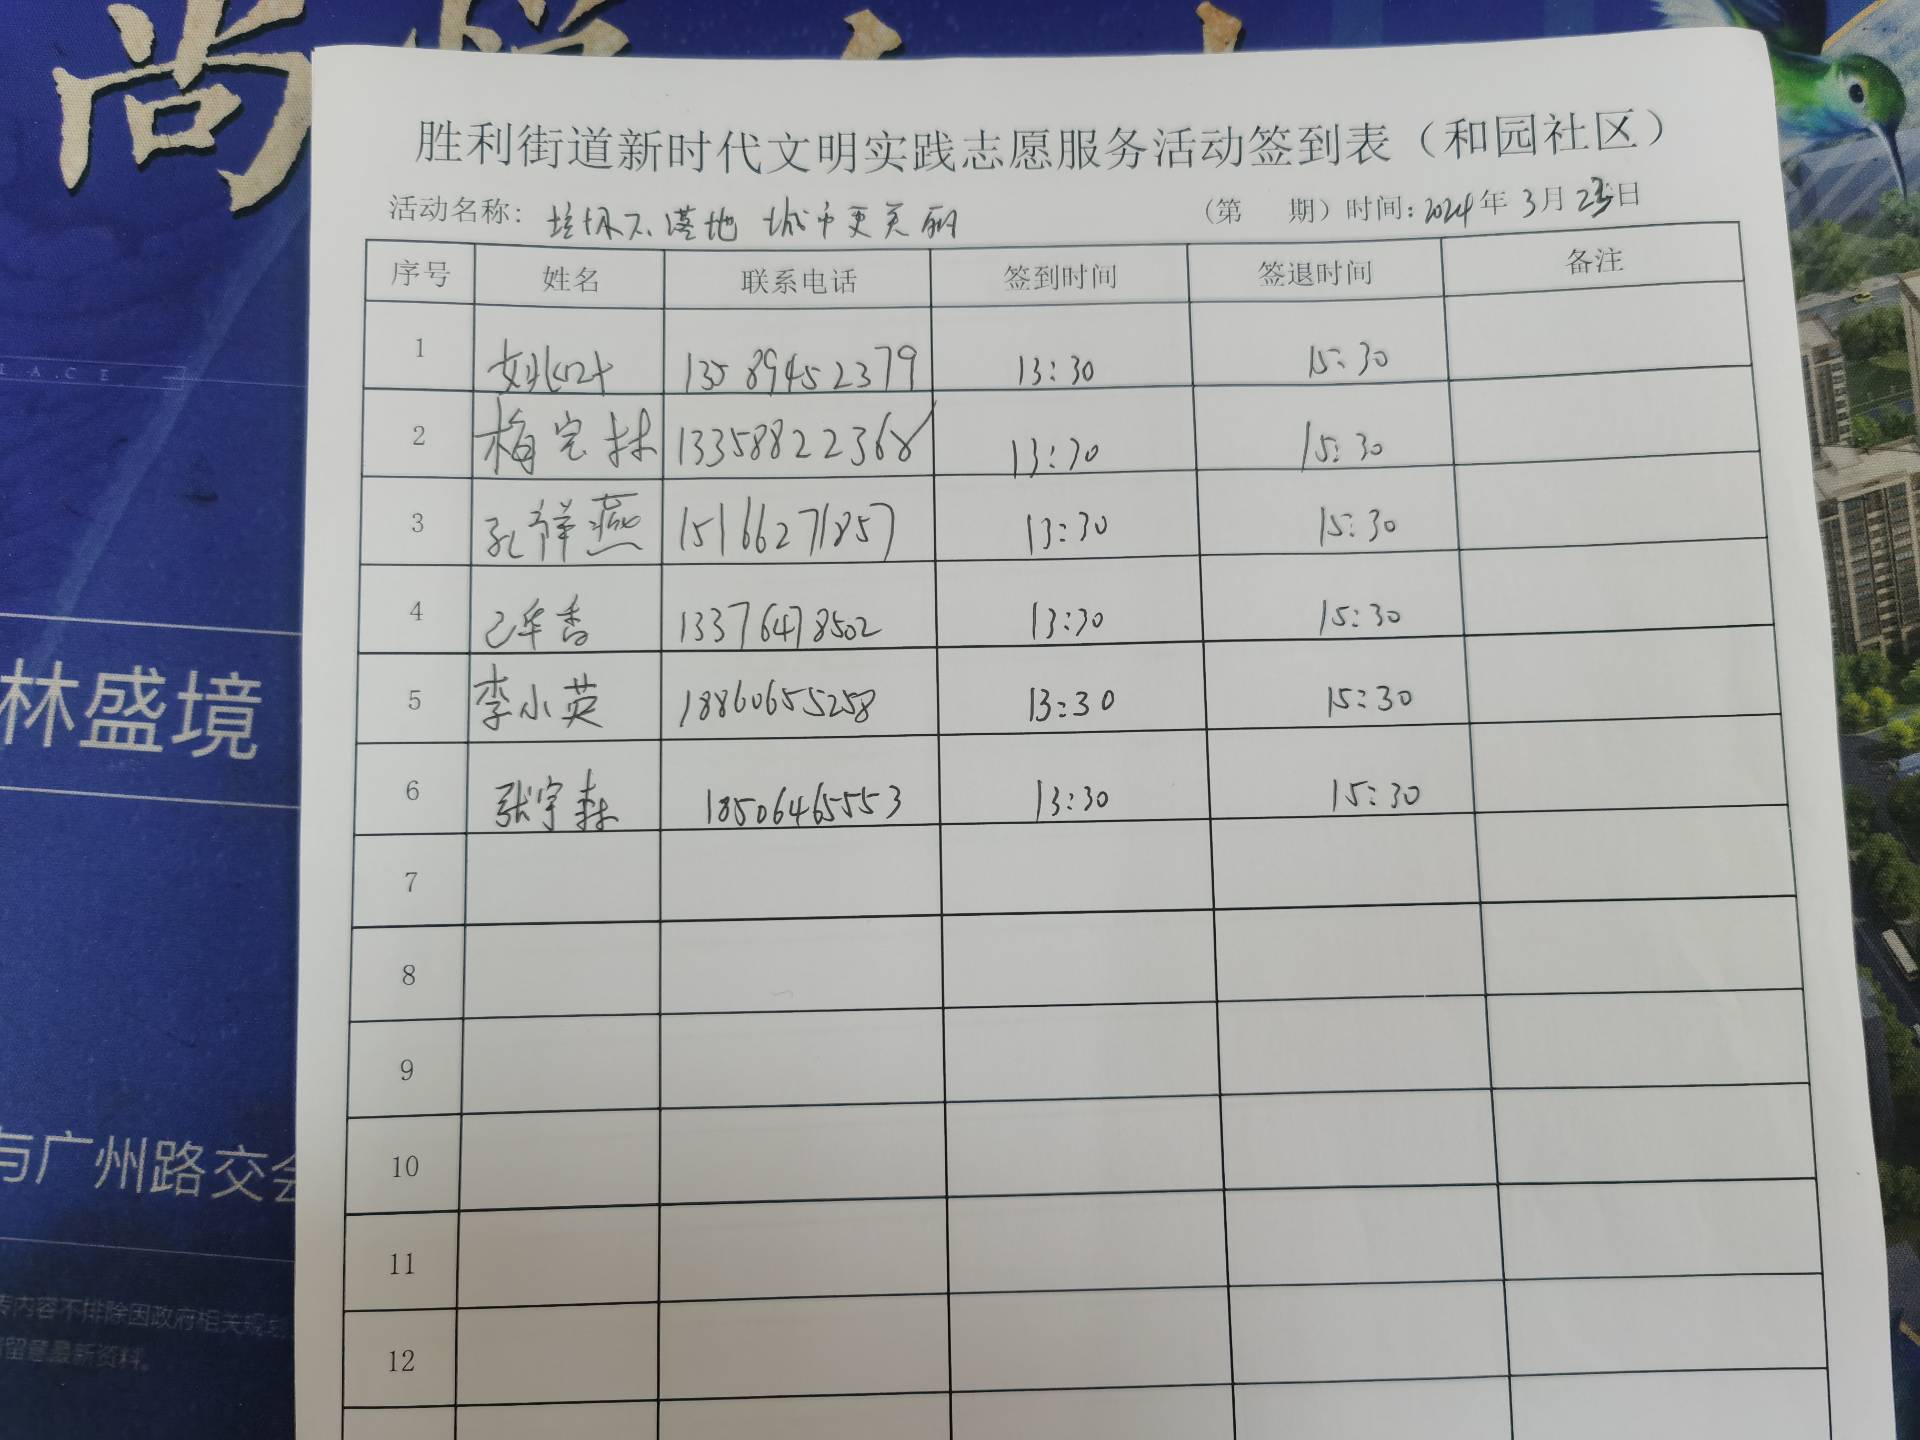 尚悦
胜利街道新时代文明实践志愿服务活动签到表（和园社区）
活动名称：垃圾不落地 城市更美丽 （第 期）时间：2024年3月23日
序号 姓名 联系电话 签到时间 签退时间 备注
1 姚叶 13589452379 13:30 15:30
2 梅完林 13358822368 13:30 15:30
3 孔祥燕 15166271857 13:30 15:30
4 香 13376478502 13:30 15:30
5 李小英 18860655258 13:30 15:30
6 张宇森 18506465553 13:30 15:30
7
8
9
10
11
12
林盛境
与广州路交会
内容不排除因政府相关规
留意最新资料。